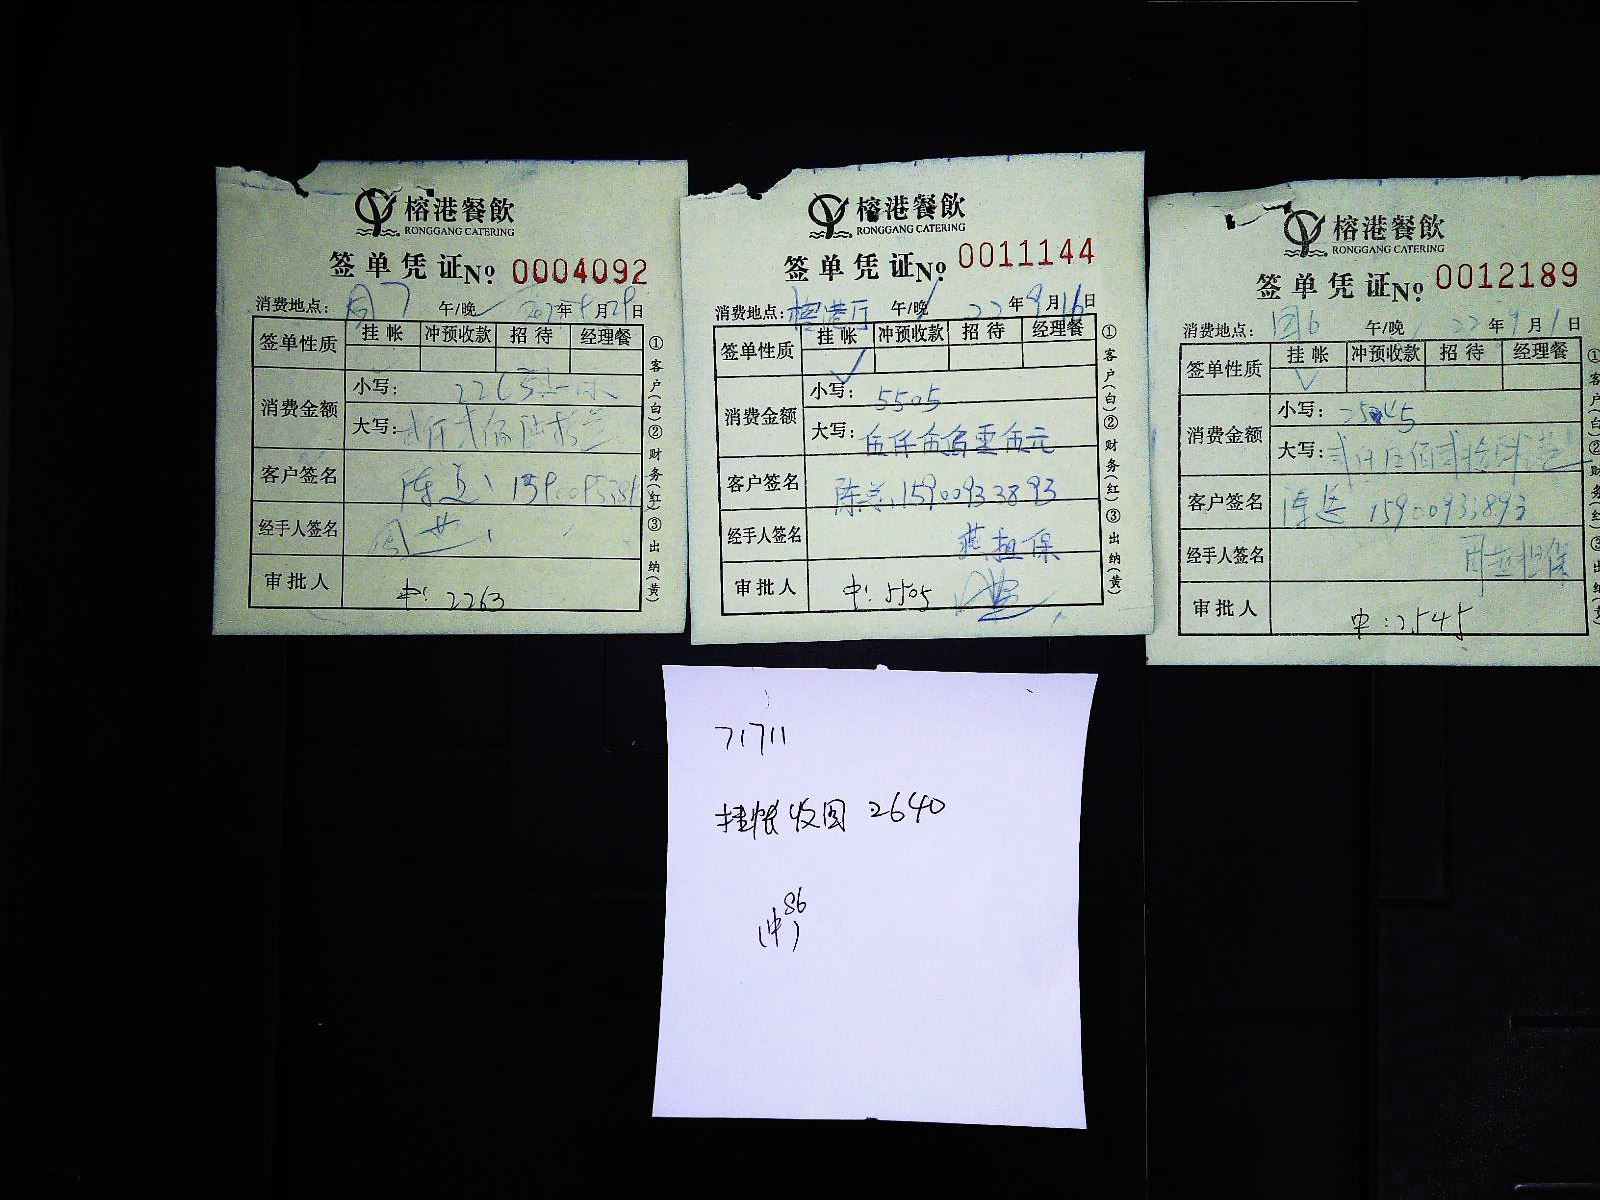 榕港餐飲
RONGGANG CATERING
签单凭证 No 0004092
消费地点： 午/晚 年 月29日
签单性质 挂帐 冲预收款 招待 经理餐
消费金额 小写：2263
大写：
客户签名 陈
经手人签名
审批人 中：2263
①客户（白）②财务（红）③出纳（黄）
榕港餐飲
RONGGANG CATERING
签单凭证 No 0011144
消费地点：榕港厅 午/晚 22年9月16日
签单性质 挂帐 冲预收款 招待 经理餐
✓
消费金额 小写：5505
大写：伍仟伍佰零伍元
客户签名 陈 15900933893
经手人签名 担保
审批人 中：5505
①客户（白）②财务（红）③出纳（黄）
榕港餐飲
RONGGANG CATERING
签单凭证 No 0012189
消费地点：团6 午/晚 22年9月1日
签单性质 挂帐 冲预收款 招待 经理餐
✓
消费金额 小写：2545
大写：
客户签名 陈 15900933893
经手人签名 担保
审批人 中：2545
71711
挂账收回 2640
86
（中）